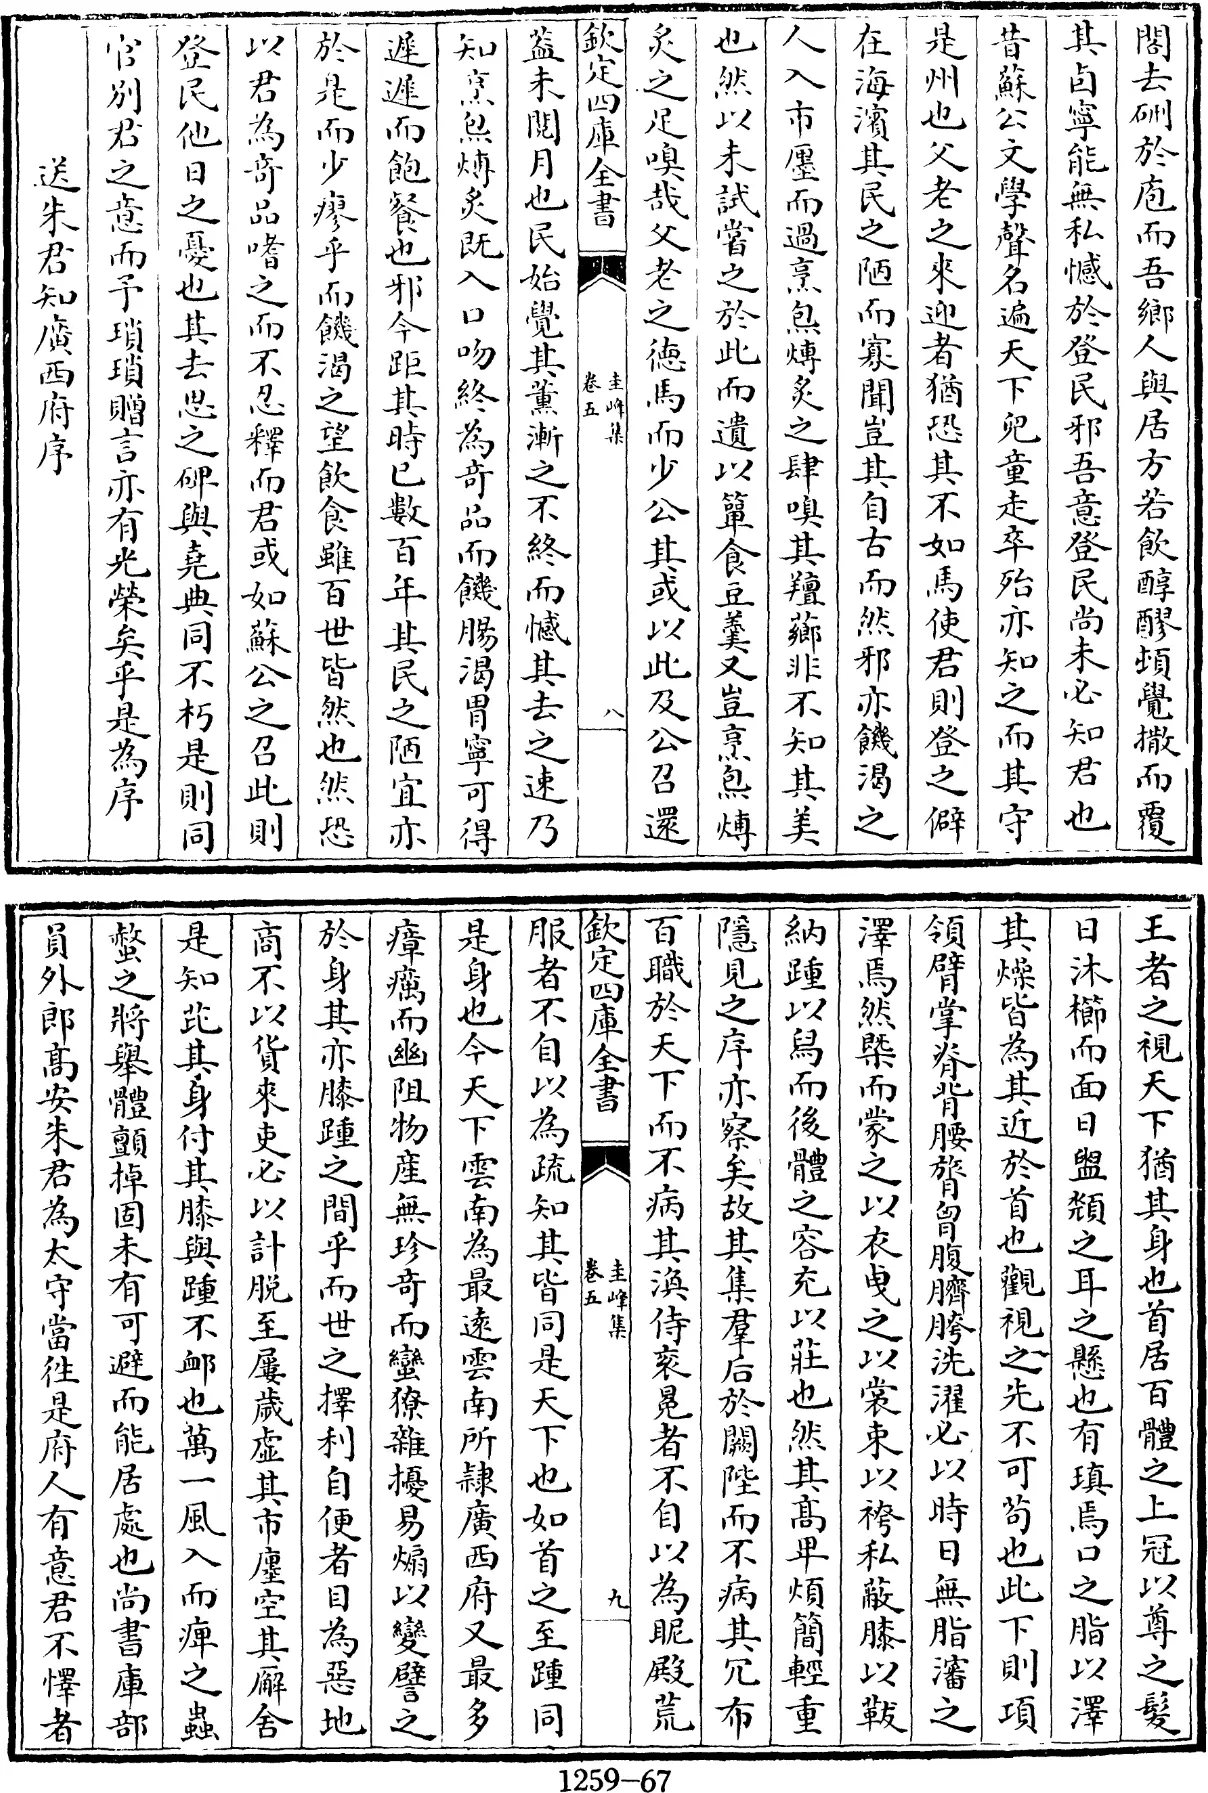 閤去硎於庖而吾鄉人與居方若飲醇醪頓覺撤而覆
其卣寧能無私憾於登民邪吾意登民尚未必知君也
昔蘇公文學聲名遍天下兒童走卒殆亦知之而其守
是州也父老之來迎者猶恐其不如馬使君則登之僻
在海濱其民之陋而寡聞豈其自古而然邪亦饑渴之
人入市廛而過烹炰煿炙之肆嗅其羶薌非不知其美
也然以未試嘗之於此而遺以簞食豆羹又豈烹炰煿
炙之足嗅哉父老之德馬而少公其或以此及公召還
欽定四庫全書
圭峰集
卷五
八
蓋未閱月也民始覺其薰漸之不終而憾其去之速乃
知烹炰煿炙既入口吻終為奇品而饑腸渴胃寧可得
遲遲而飽餐也邪今距其時已數百年其民之陋宜亦
於是而少瘳乎而饑渴之望飲食雖百世皆然也然恐
以君為奇品嗜之而不忍釋而君或如蘇公之召此則
登民他日之憂也其去思之碑與堯典同不朽是則同
官別君之意而予瑣瑣贈言亦有光榮矣乎是為序
送朱君知廣西府序
王者之視天下猶其身也首居百體之上冠以尊之髮
日沐櫛而面日盥頮之耳之懸也有瑱焉口之脂以澤
其燥皆為其近於首也觀視之先不可苟也此下則項
領臂掌脊背腰膂胷腹臍胯洗濯必以時日無脂瀋之
澤焉然槩而蒙之以衣曳之以裳束以袴私蔽膝以韍
納踵以舄而後體之容充以莊也然其高卑煩簡輕重
隱見之序亦察矣故其集羣后於闕陛而不病其冗布
百職於天下而不病其渙侍衮冕者不自以為昵殿荒
欽定四庫全書
圭峰集
卷五
九
服者不自以為疏知其皆同是天下也如首之至踵同
是身也今天下雲南為最逺雲南所隸廣西府又最多
瘴癘而幽阻物産無珍奇而蠻獠雜擾易煽以變譬之
於身其亦膝踵之間乎而世之擇利自便者目為惡地
商不以貨來吏必以計脫至屢歲虛其市廛空其廨舍
是知芘其身付其膝與踵不卹也萬一風入而痺之蟲
螫之將舉體顫掉固未有可避而能居處也尚書庫部
員外郎高安朱君為太守當徃是府人有意君不懌者
1259-67